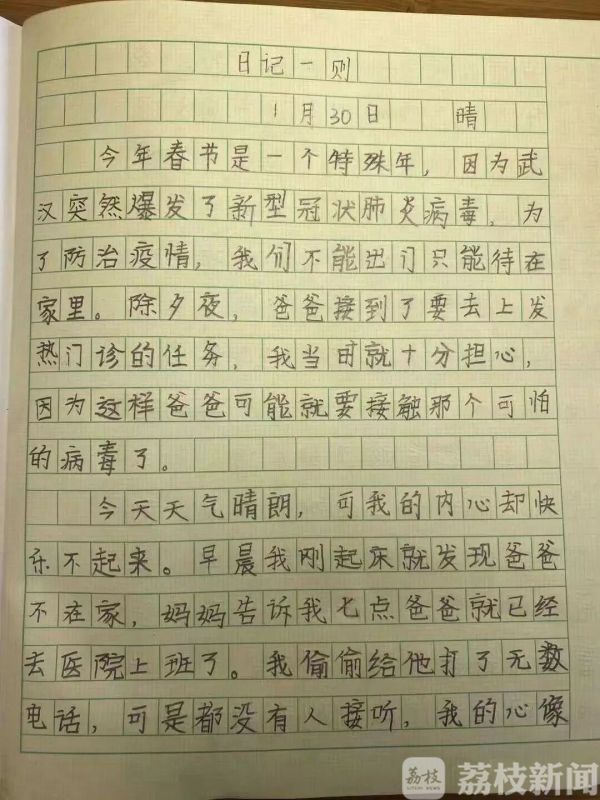 日记一则
1月30日 晴
今年春节是一个特殊年，因为武
汉突然爆发了新型冠状肺炎病毒，为
了防治疫情，我们不能出门只能待在
家里。除夕夜，爸爸接到了要去上发
热门诊的任务，我当时就十分担心，
因为这样爸爸可能就要接触那个可怕
的病毒了。
今天天气晴朗，可我的内心却快
乐不起来。早晨我刚起床就发现爸爸
不在家，妈妈告诉我七点爸爸就已经
去医院上班了。我偷偷给他打了无数
电话，可是都没有人接听，我的心像
荔枝 荔枝新闻
LITCHI NEWS